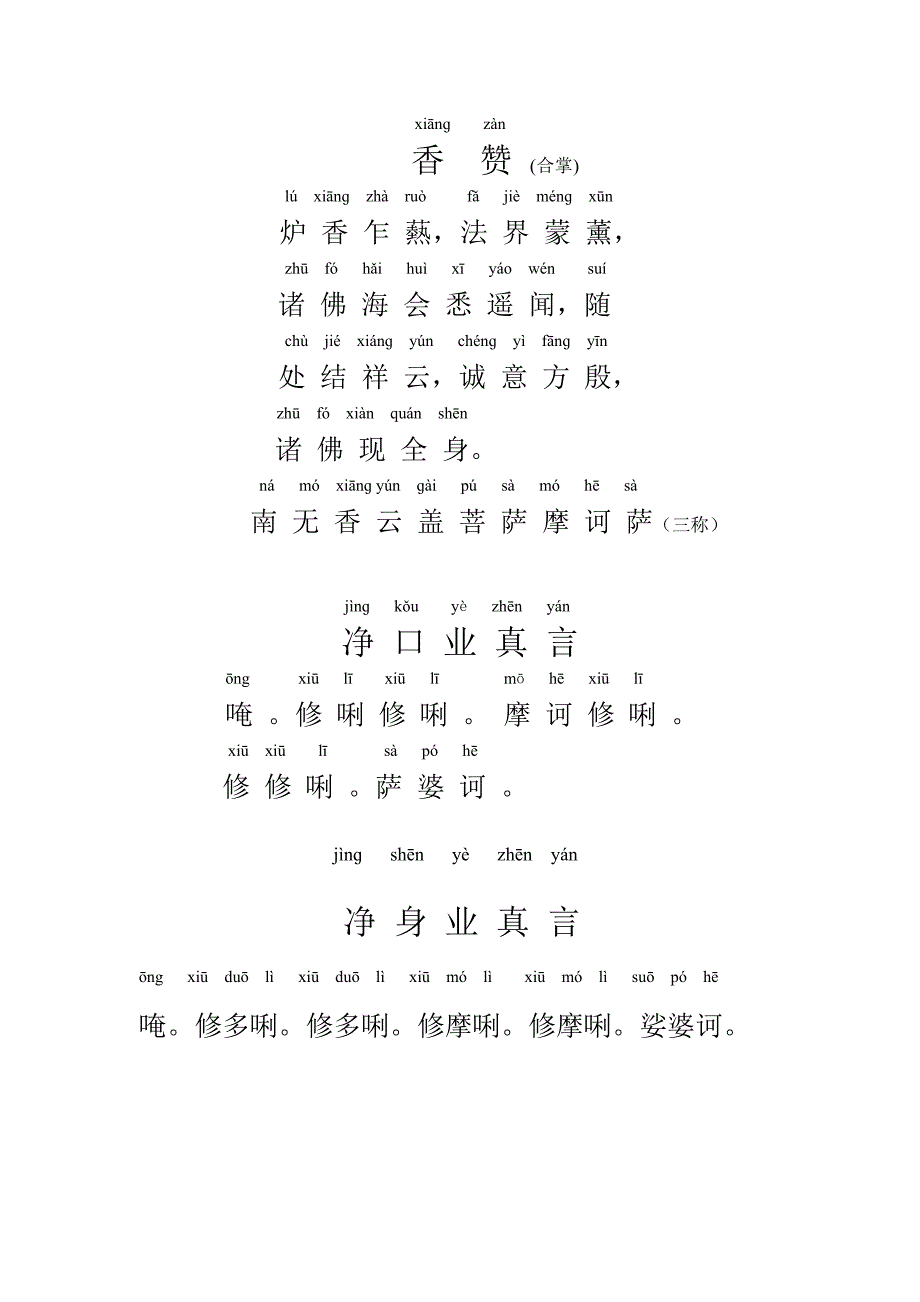 xiāng zàn
香 赞 (合掌)
lú xiāng zhà ruò fǎ jiè méng xūn
炉 香 乍 爇，法 界 蒙 薰，
zhū fó hǎi huì xī yáo wén suí
诸 佛 海 会 悉 遥 闻，随
chù jié xiáng yún chéng yì fāng yīn
处 结 祥 云，诚 意 方 殷，
zhū fó xiàn quán shēn
诸 佛 现 全 身。
ná mó xiāng yún gài pú sà mó hē sà
南 无 香 云 盖 菩 萨 摩 诃 萨（三称）
jìng kǒu yè zhēn yán
净 口 业 真 言
ōng xiū lī xiū lī mō hē xiū lī
唵 。修 唎 修 唎 。 摩 诃 修 唎 。
xiū xiū lī sà pó hē
修 修 唎 。萨 婆 诃 。
jìng shēn yè zhēn yán
净 身 业 真 言
ōng xiū duō lì xiū duō lì xiū mó lì xiū mó lì suō pó hē
唵。修多唎。修多唎。修摩唎。修摩唎。娑婆诃。